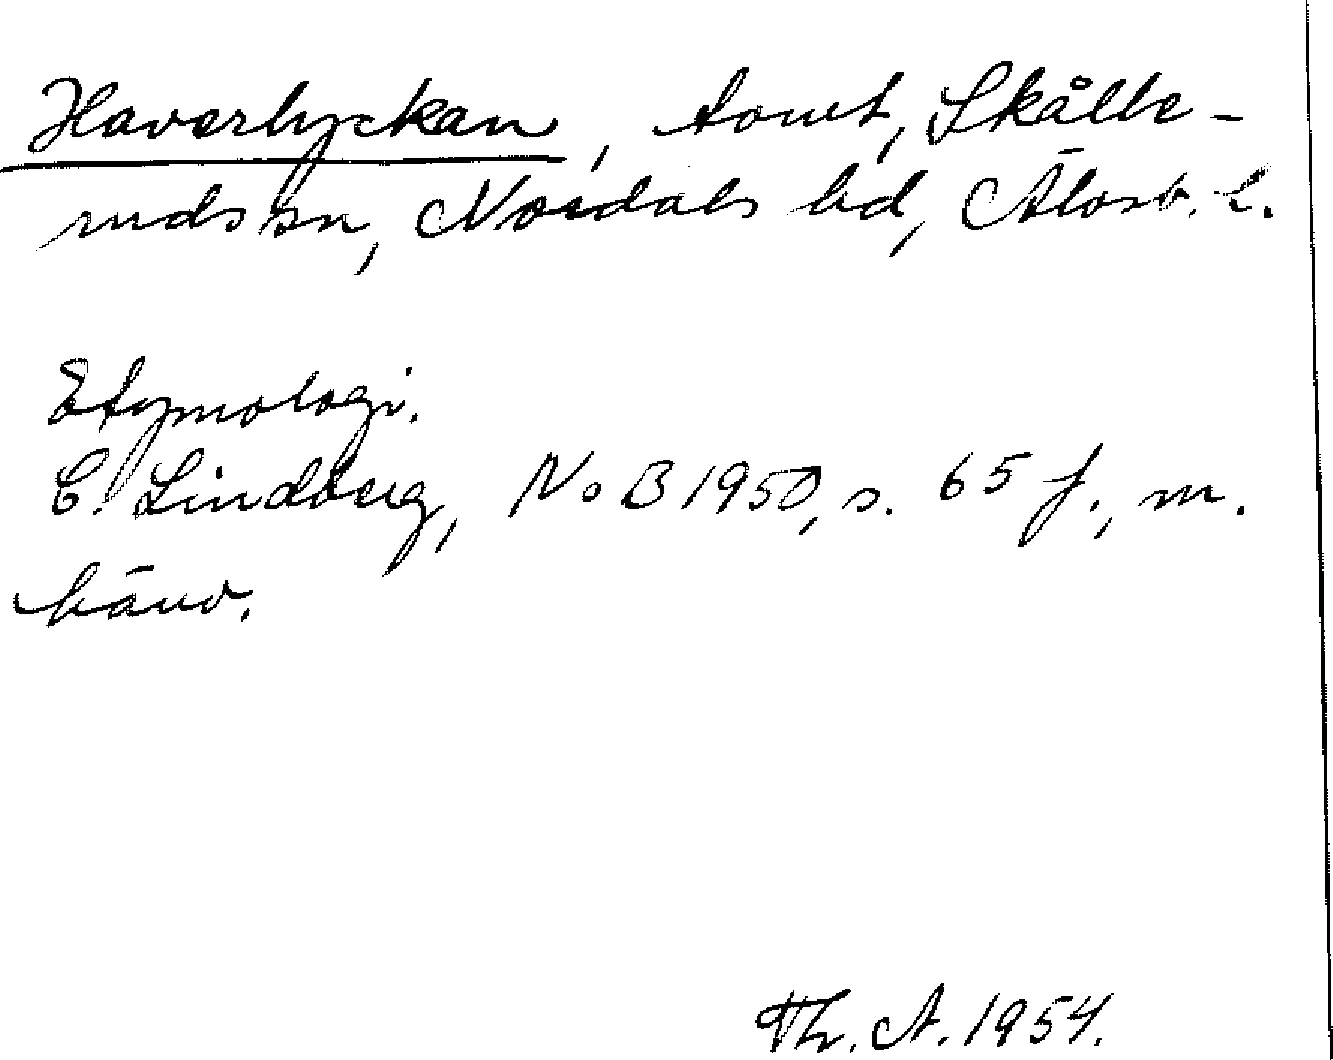 Haverlyckan, tomt, Skålle-
ruds sn, Nordals hd, Älvsb. l.
Etymologi.
C. Lindberg, NoB 1950, s. 65 f., m.
hänv.
Th. A. 1954.